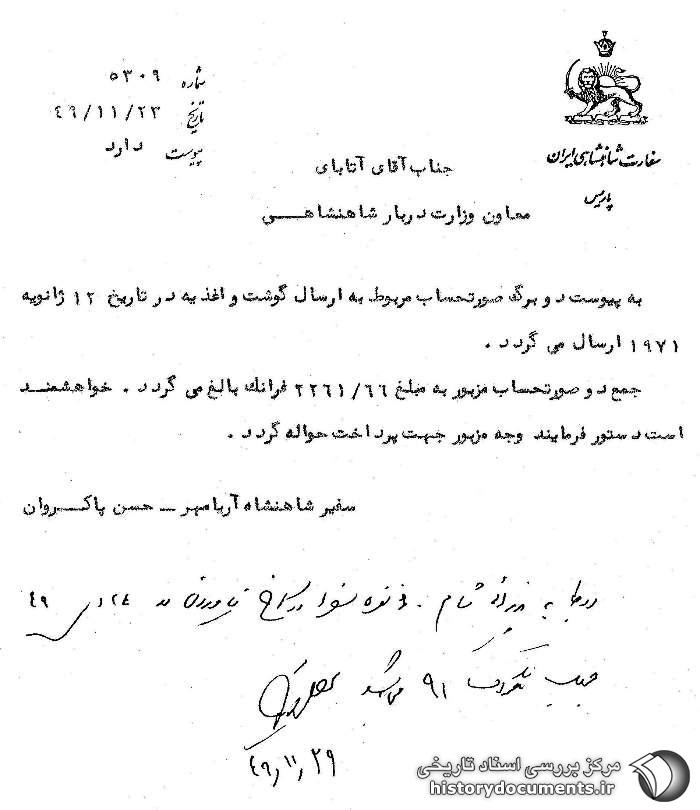 سفارت شاهنشاهی ایران
پاریس
شماره ۵۳۰۹
تاریخ ۴۹/۱۱/۲۳
پیوست دارد
جناب آقای آتابای
معاون وزارت دربار شاهنشاهــی
به پیوست دو برگ صورتحساب مربوط به ارسال گوشت و اغذیه در تاریخ ۱۲ ژانویه
۱۹۷۱ ارسال می گردد .
جمع دو صورتحساب مزبور به مبلغ ۲۲۶۱/۶۶ فرانك بالغ می گردد . خواهشمنـد
است دستور فرمایند وجه مزبور جهت پرداخت حواله گردد .
سفیر شاهنشاه آریامهر ــ حسن پاکــروان
۹۱
۴۹٫۱۱٫۲۹
مرکز بررسی اسناد تاریخی
historydocuments.ir